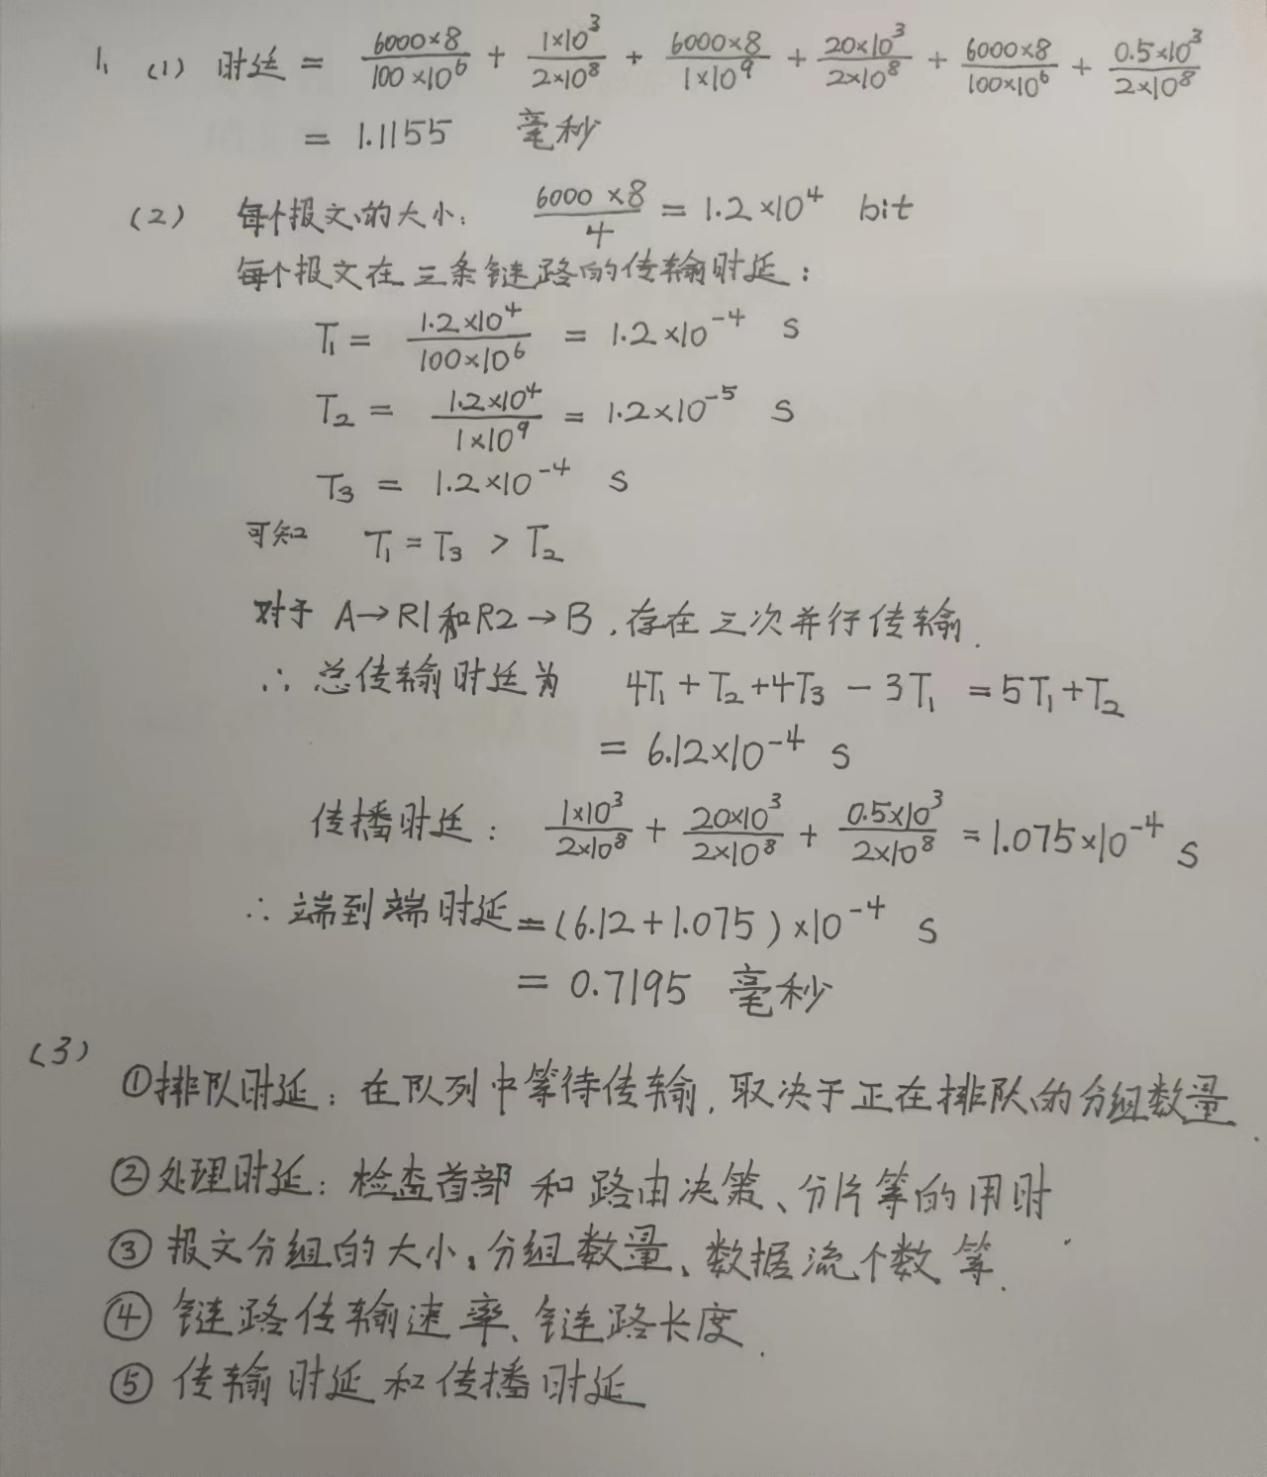 1. (1) 时延 = 6000×8/100×10⁶ + 1×10³/2×10⁸ + 6000×8/1×10⁹ + 20×10³/2×10⁸ + 6000×8/100×10⁶ + 0.5×10³/2×10⁸
= 1.1155 毫秒
(2) 每个报文的大小: 6000×8/4 = 1.2×10⁴ bit
每个报文在三条链路的传输时延:
T₁ = 1.2×10⁴/100×10⁶ = 1.2×10⁻⁴ s
T₂ = 1.2×10⁴/1×10⁹ = 1.2×10⁻⁵ s
T₃ = 1.2×10⁻⁴ s
可知 T₁ = T₃ > T₂
对于 A→R1和R2→B,存在三次并行传输.
∴ 总传输时延为 4T₁+T₂+4T₃-3T₁ =5T₁+T₂
= 6.12×10⁻⁴ s
传播时延: 1×10³/2×10⁸ + 20×10³/2×10⁸ + 0.5×10³/2×10⁸ = 1.075×10⁻⁴ s
∴ 端到端时延=(6.12+1.075)×10⁻⁴ s
= 0.7195 毫秒
(3)
①排队时延:在队列中等待传输,取决于正在排队的分组数量.
②处理时延:检查首部和路由决策、分片等的用时.
③报文分组的大小、分组数量、数据流个数等.
④链路传输速率、链路长度.
⑤传输时延和传播时延